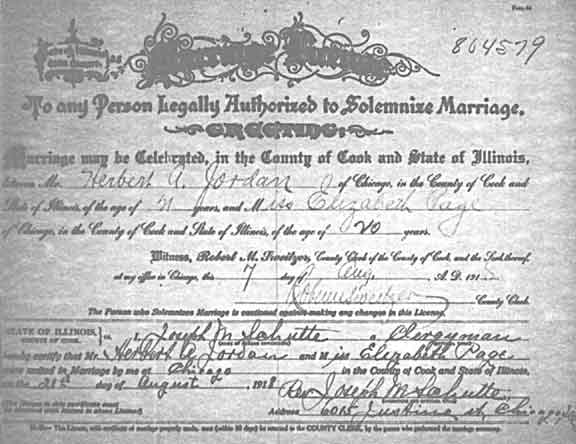 804579
To any Person Legally Authorized to Solemnize Marriage,
GREETING:
Marriage may be Celebrated, in the County of Cook and State of Illinois,
between Mr. Herbert A. Jordan of Chicago, in the County of Cook and
State of Illinois, of the age of 21 years, and Miss Elizabeth Page
of Chicago, in the County of Cook and State of Illinois, of the age of 20 years.
Witness, Robert M. Sweitzer, County Clerk of the County of Cook, and the Seal thereof,
at my office in Chicago, this 7 day of Aug. A. D. 191
Robert M Sweitzer County Clerk.
The Person who Solemnizes Marriage is cautioned against making any changes in this License.
STATE OF ILLINOIS,
COUNTY OF COOK. I, Joseph M a Clergyman
hereby certify that Mr. Herbert A. Jordan and Miss Elizabeth Page
were united in Marriage by me at Chicago in the County of Cook and State of Illinois,
on the 21st day of August 1918
Rev. Joseph M
Address Justine st, Chicago
Note:—This License, with certificate of marriage properly made, must (within 30 days) be returned to the COUNTY CLERK, by the person who performed the marriage ceremony.